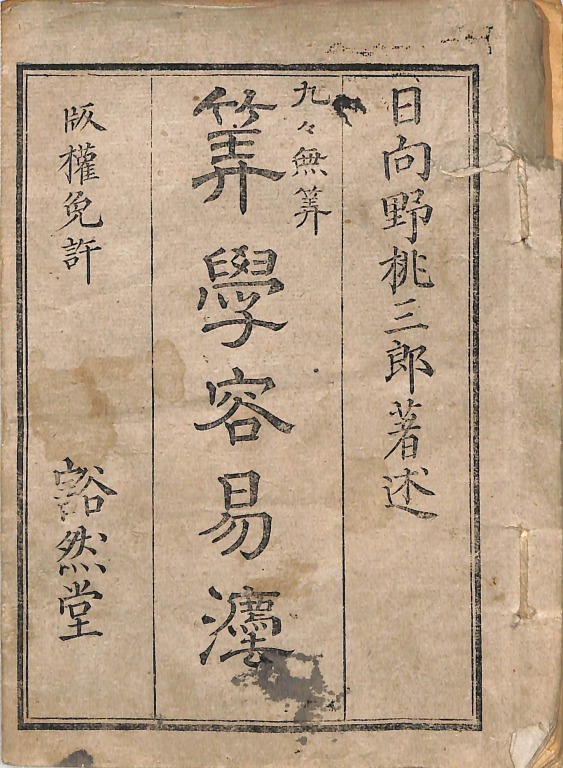 日向野桃三郎著述
九々無筭
筭學容易灋
版權免許
豁然堂